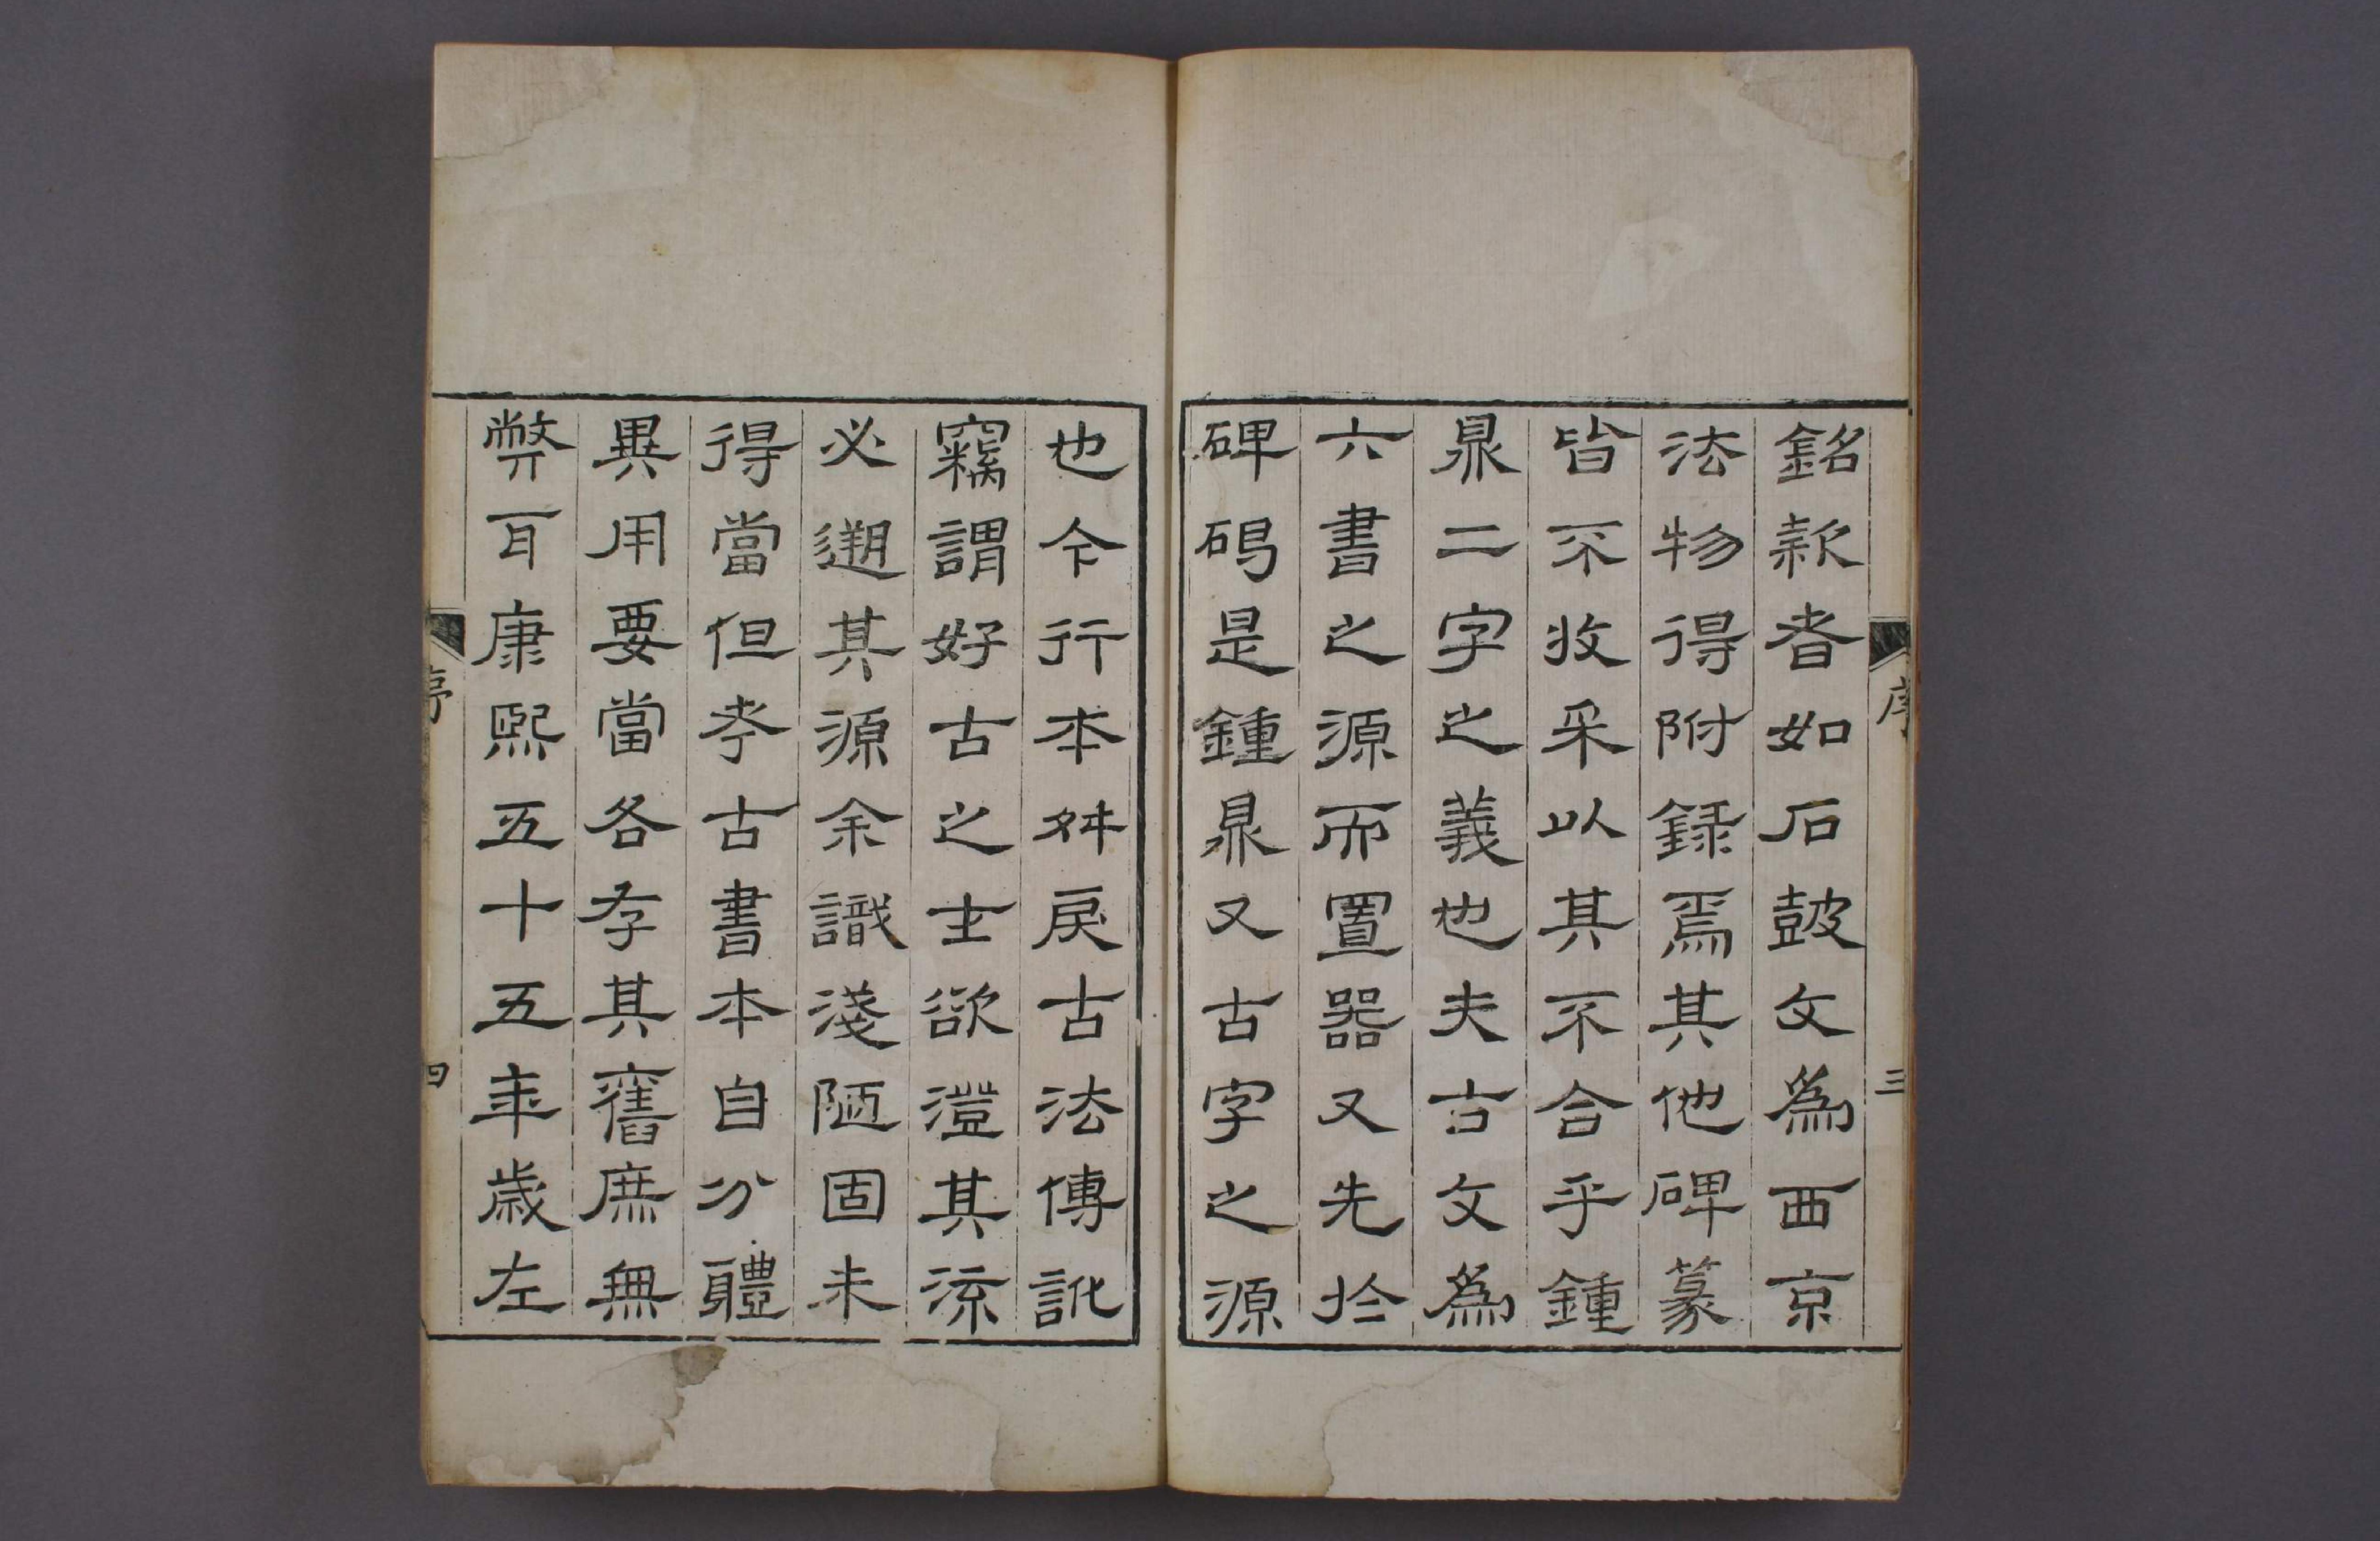 銘款者如石鼓文為西京
法物得附録焉其他碑篆
皆不收采以其不合乎鍾
鼎二字之義也夫古文為
六書之源而置器又先於
碑碣是鍾鼎又古字之源
也今行本舛戾古法傳訛
竊謂好古之士欲澄其流
必遡其源余識淺陋固未
得當但考古書本自分體
異用要當各存其舊庶無
弊耳康熙五十五年歲左
序
三
序
四